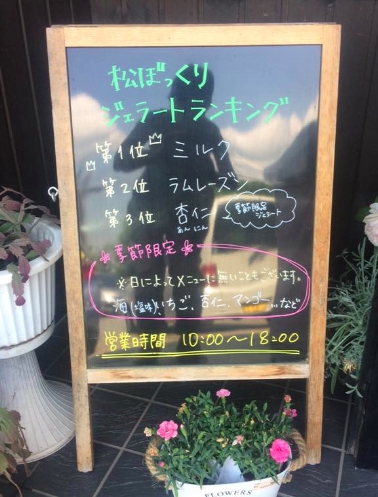 松ぼっくり
ジェラートランキング
第1位 ミルク
第2位 ラムレーズン
第3位 杏仁
あんにん
季節限定
ジェラート
季節限定
※日によってメニューに無いこともございます。
海(塩味)、いちご、杏仁、マンゴー...など
営業時間 10:00〜18:00
FLOWERS